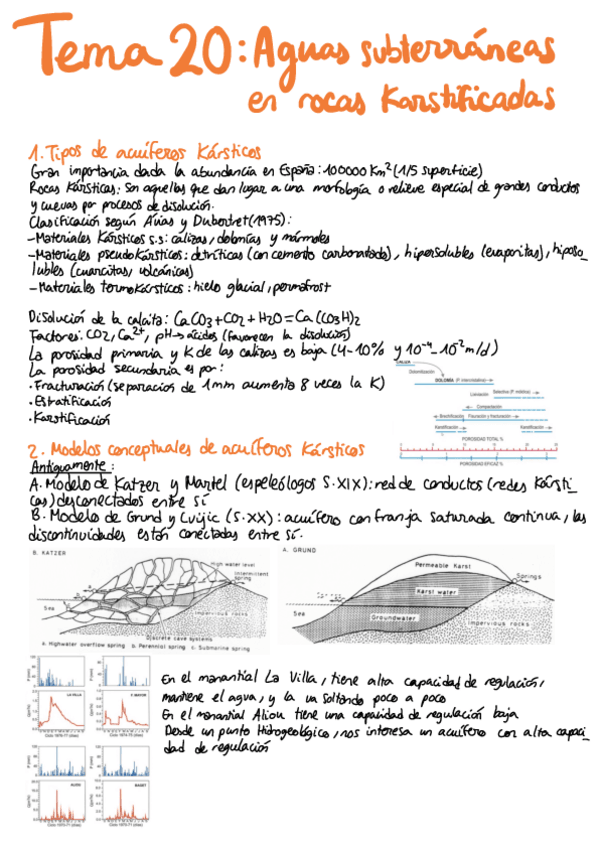 Tema 20: Aguas subterráneas
en rocas Karstificadas
1. Tipos de acuíferos Kársticos
Gran importancia dada la abundancia en España: 100000 Km² (1/5 superficie)
Rocas Kársticas: Son aquellas que dan lugar a una morfología o relieve especial de grandes conductos
y cuevas por procesos de disolución.
Clasificación según Avias y Dubertret (1975):
-Materiales Kársticos s.s: calizas, dolomías y mármoles
-Materiales pseudokársticos: detríticas (con cemento carbonatado), hipersolubles (evaporitas), hiposo_
lubles (cuarcitas, volcánicas)
-Materiales termokársticos: hielo glacial, permafrost
Disolución de la calcita: CaCO3+CO2+H2O=Ca(CO3H)2
Factores: CO2, Ca²⁺, pH→ácidos (favorecen la disolución)
La porosidad primaria y K de las calizas es baja (4-10% y 10⁻⁴-10⁻²m/d)
La porosidad secundaria es por:
·Fracturación (separación de 1mm aumenta 8 veces la K)
·Estratificación
·Karstificación
CALIZA
Dolomitización
DOLOMÍA (P. Intercristalina)
Selectiva (P. móldica)
Lixiviación
Compactación
Brechificación
Fisuración y fracturación
Karstificación
Karstificación
POROSIDAD TOTAL %
POROSIDAD EFICAZ %
2. Modelos conceptuales de acuíferos Kársticos
Antiguamente:
A. Modelo de Katzer y Martel (espeleólogos S.XIX): red de conductos (redes Kársti_
cas) desconectados entre sí
B. Modelo de Grund y Cvijic (S.XX): acuífero con franja saturada continua, las
discontinuidades están conectadas entre sí.
B. KATZER
High water level
Intermittent
spring
a
b
Sea
Impervious rocks
Discrete cave systems
a. Highwater overflow spring b. Perennial spring c. Submarine spring
A. GRUND
Permeable Karst
Springs
Karst water
Sea
Groundwater
Impervious rocks
LA VILLA
F. MAYOR
En el manantial La Villa, tiene alta capacidad de regulación,
mantiene el agua, y la va soltando poco a poco
En el manantial Aliou tiene una capacidad de regulación baja
Desde un punto Hidrogeológico, nos interesa un acuífero con alta capaci_
dad de regulación